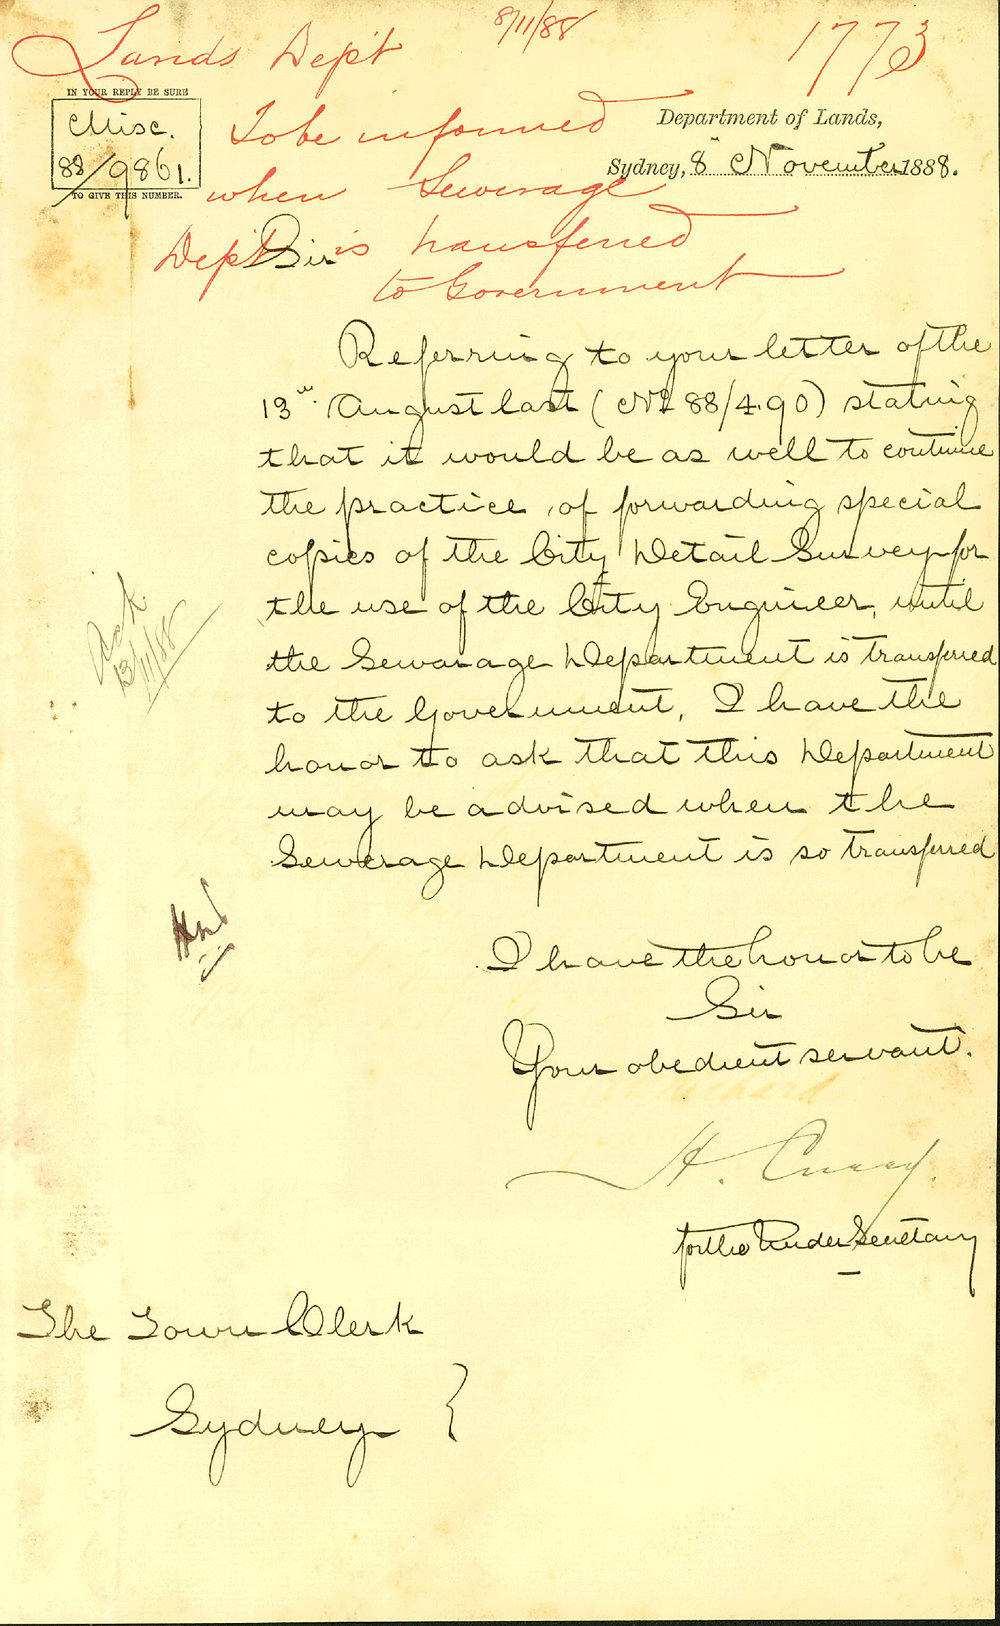 Lands Dept
8/11/88
1773
IN YOUR REPLY BE SURE
Misc.
88/9861.
TO GIVE THIS NUMBER.
To be informed
when Sewerage
Dept is transferred
to Government
Department of Lands,
Sydney, 8th November 1888.
Sir
Referring to your letter of the
13th August last (No 88/490) stating
that it would be as well to continue
the practice, of forwarding special
copies of the City Detail Survey for
the use of the City Engineer, until
the Sewarage Department is transferred
to the Government, I have the
honor to ask that this Department
may be advised when the
Sewerage Department is so transferred
Ack.
13/11/88
I have the honor to be
Sir
Your obedient servant.
H.
for the Under Secretary
The Town Clerk
Sydney }